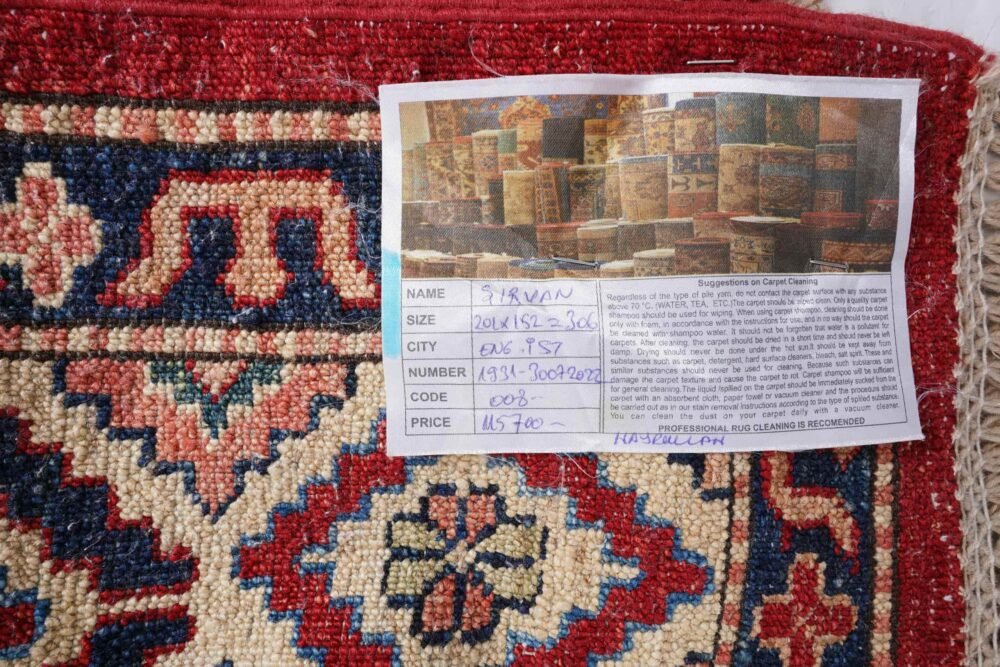 NAME ŞIRVAN
SIZE 201x152=306
CITY ENG. İST
NUMBER 1931-30072022
CODE 008-
PRICE 115700-
Suggestions on Carpet Cleaning
Regardless of the type of pile yarn, do not contact the carpet surface with any substance
above 70 °C. (WATER, TEA, ETC.)The carpet should be wiped clean. Only a quality carpet
shampoo should be used for wiping. When using carpet shampoo, cleaning should be done
only with foam, in accordance with the instructions for use, and in no way should the carpet
be cleaned with shampoo water. It should not be forgotten that water is a pollutant for
carpets. After cleaning, the carpet should be dried in a short time and should never be left
damp. Drying should never be done under the hot sun.It should be kept away from
substances such as carpet, detergent, hard surface cleaners, bleach, salt spirit. These and
similar substances should never be used for cleaning. Because such substances can
damage the carpet texture and cause the carpet to rot. Carpet shampoo will be sufficient
for general cleaning.The liquid /spilled on the carpet should be immediately sucked from the
carpet with an absorbent cloth, paper towel or vacuum cleaner and the procedure should
be carried out as in our stain removal instructions according to the type of spilled substance.
You can clean the dust on your carpet daily with a vacuum cleaner.
PROFESSIONAL RUG CLEANING IS RECOMENDED